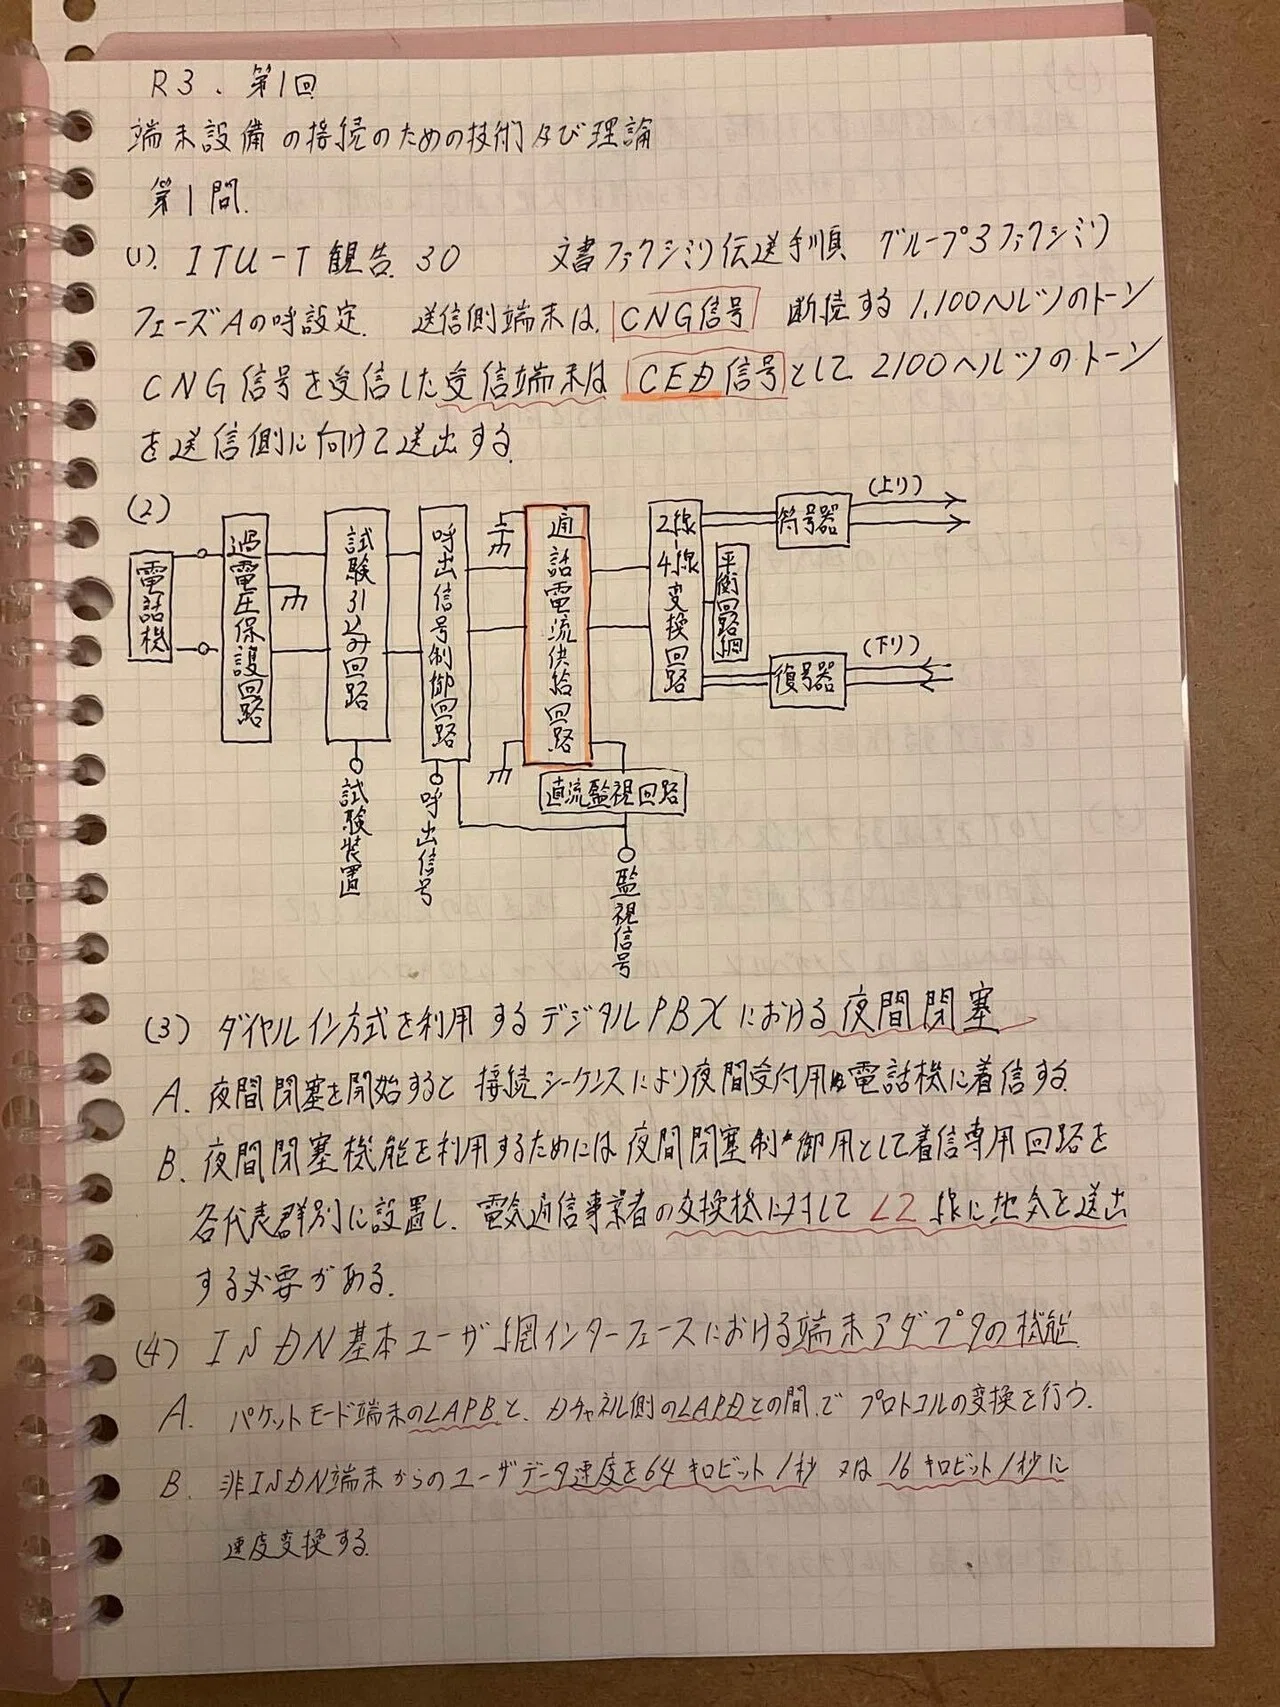 R3. 第1回
端末設備の接続のための技術及び理論
第1問.
(1). ITU-T観告.30 文書ファクシミリ伝送手順 グループ3ファクシミリ
フェーズAの呼設定. 送信側端末は、CNG信号 断続する1,100ヘルツのトーン
CNG信号を受信した受信端末は CED信号として2100ヘルツのトーン
を送信側に向けて送出する.
(2)
電話機
過電圧保護回路
試験引込み回路
呼出信号制御回路
通話電流供給回路
2線-4線変換回路
平衡回路網
符号器
(上り)
復号器
(下り)
直流監視回路
試験装置
呼出信号
監視信号
(3) ダイヤルイン方式を利用するデジタルPBXにおける夜間閉塞
A. 夜間閉塞を開始すると 接続シーケンスにより夜間受付用電話機に着信する
B. 夜間閉塞機能を利用するためには夜間閉塞制御用として着信専用回路を
各代表群別に設置し、電気通信事業者の交換機に対して L2 線に地気を送出
する必要がある.
(4) ISDN基本ユーザ網インターフェースにおける端末アダプタの機能
A. パケットモード端末のLAPBと、Dチャネル側のLAPDとの間、で プロトコルの変換を行う.
B. 非ISDN端末からのユーザデータ速度を64キロビット/秒 又は 16キロビット/秒に
速度変換する.